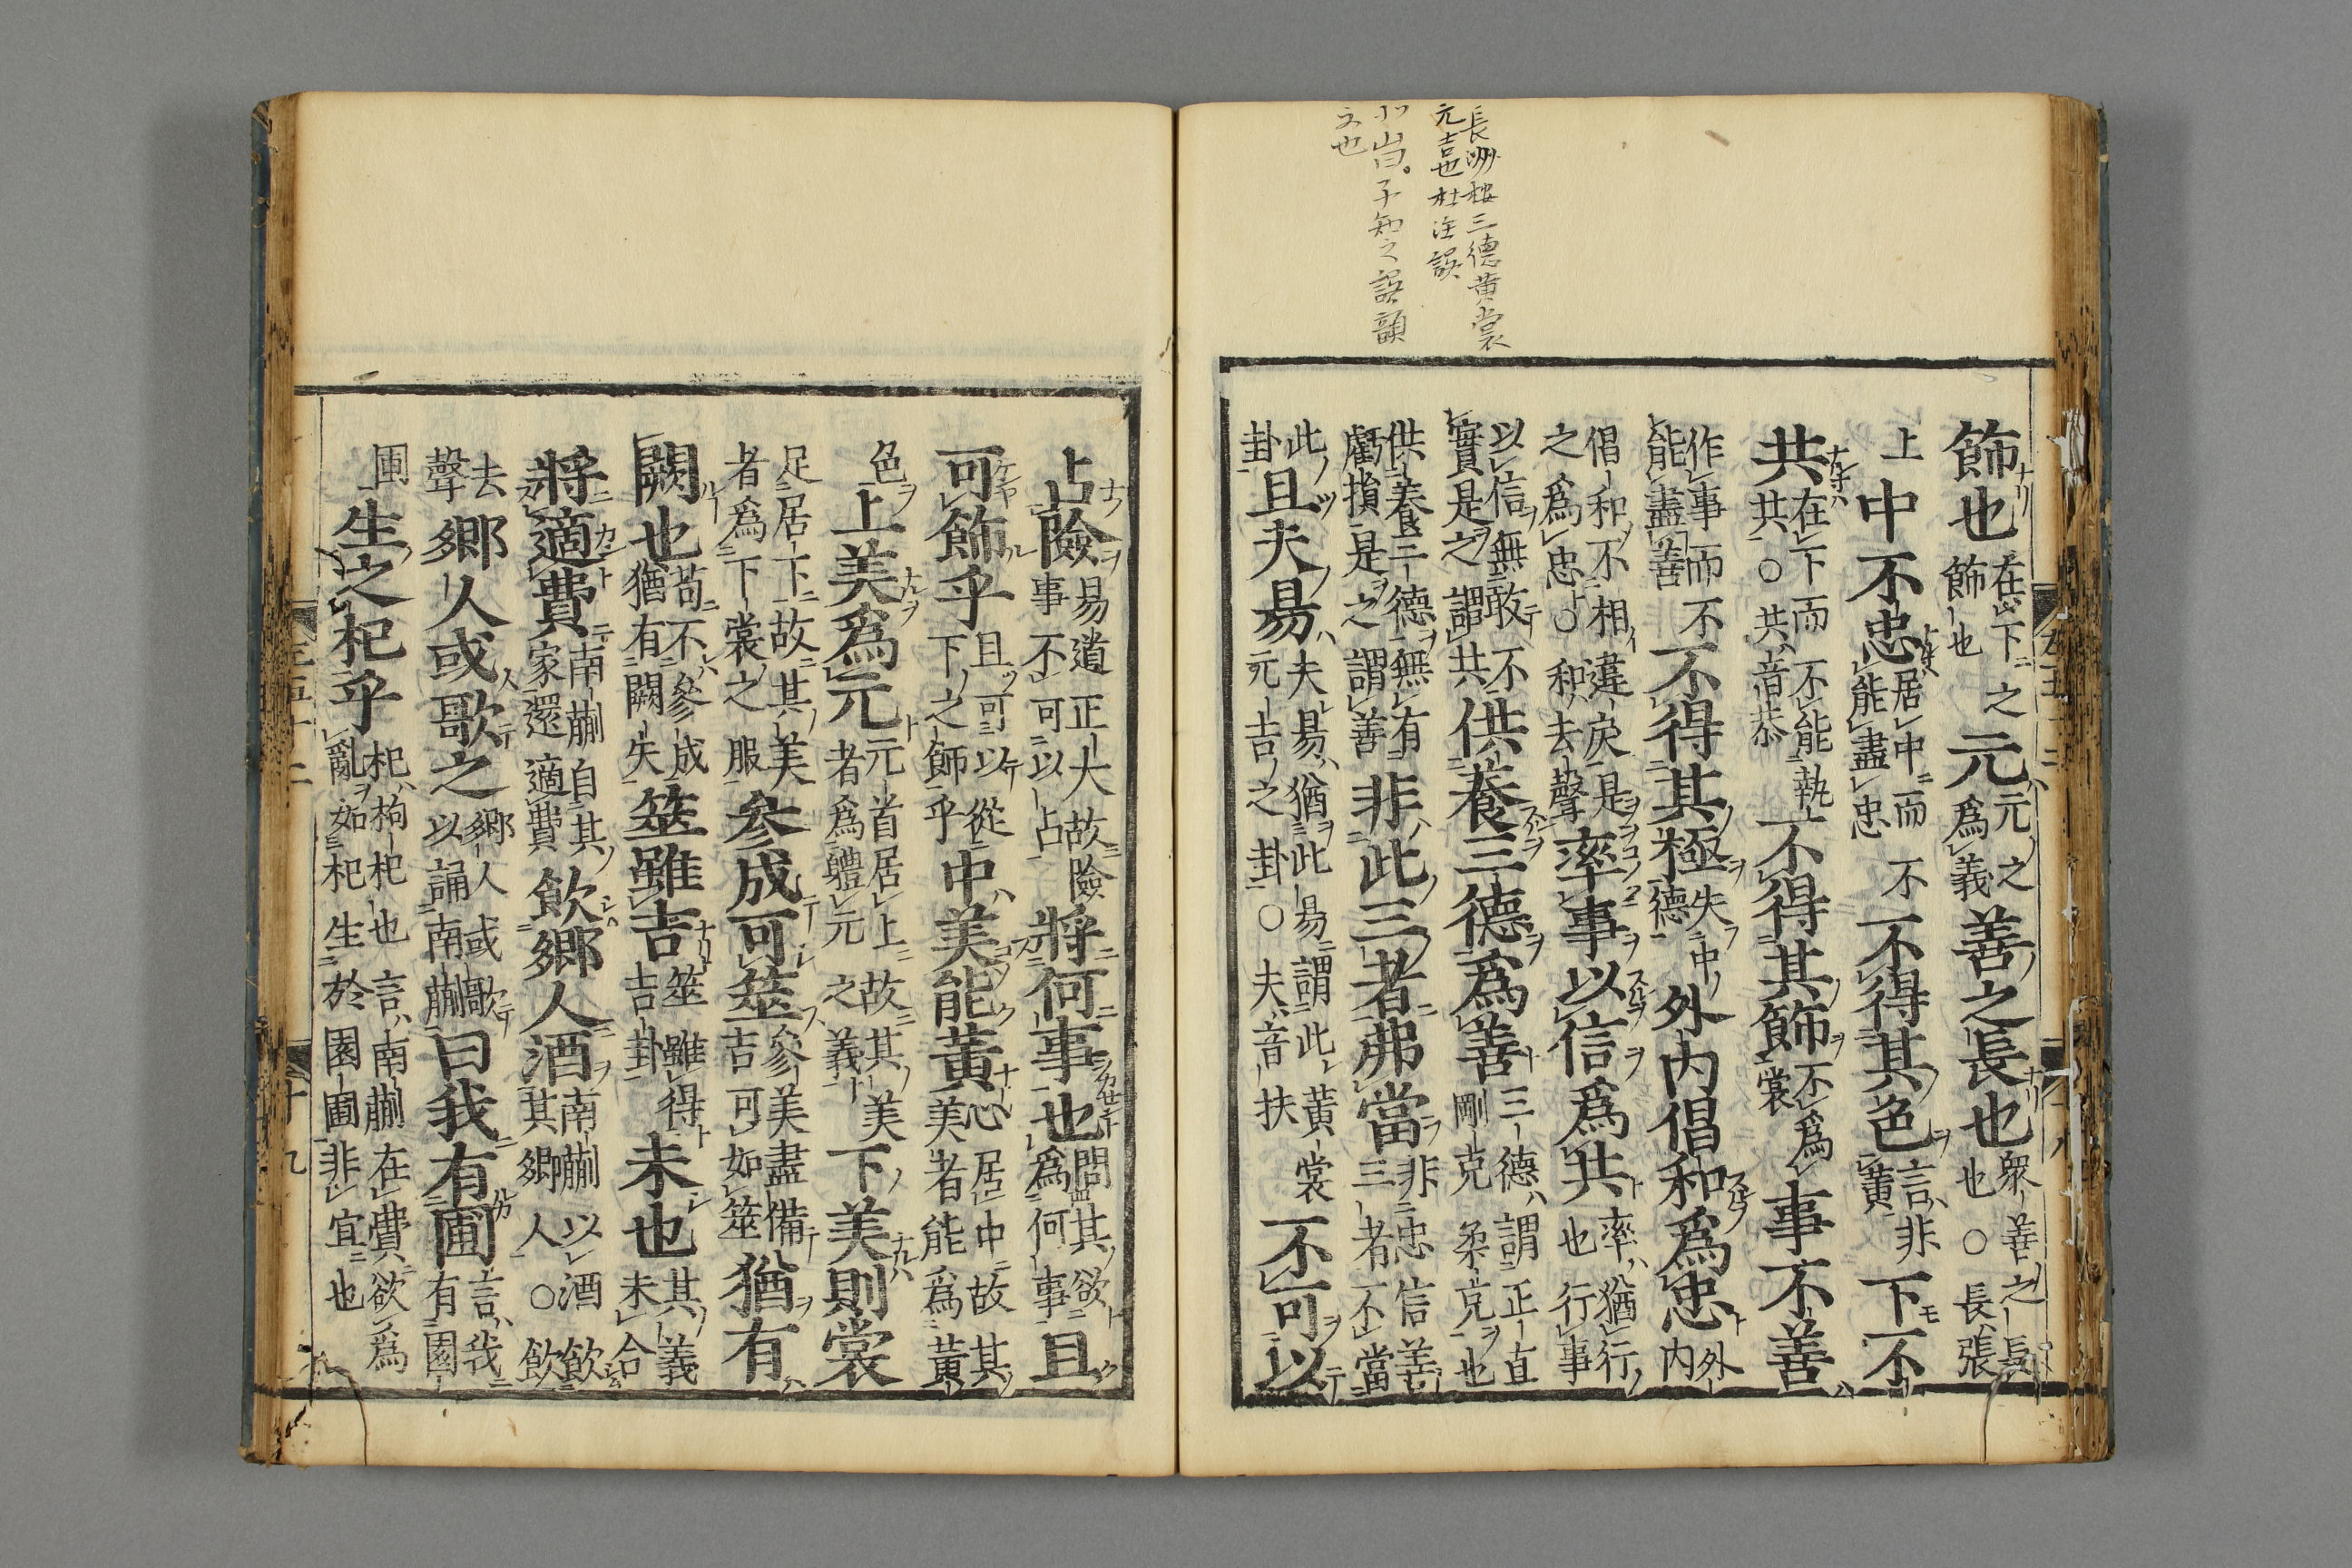 長洲按三德黄裳
元吉也杜注誤
小山曰。子知之誤韻
文也
飾也在下之飾也元元之爲義善之長也衆善之長也○長張
上中不忠居中而不能盡忠不得其色言非黄下不
共在下而不能執共○共音恭不得其飾不爲裳事不善
作事而不能盡善不得其極失中德外内倡和爲忠外内
倡和不相違戾是之爲忠○和去聲率事以信爲共率猶行也行事
以信無敢不實是之謂共供養三德爲善三德謂正直剛克柔克也
供養二德無有虧損是之謂善非此三者弗當非忠信善三者不當
此卦且夫易夫易猶此易謂此黄裳元吉之卦○夫音扶不可以
占險易道正大故險事不可以占將何事也問其欲爲何事且
可飾乎且可以從下之飾乎中美能黄心居中故其美者能爲黄
色上美爲元元首居上故其美者爲體元之義下美則裳
足居下故其美者爲下裳之服參成可筮參美盡備吉可如筮猶有
闕也苟不參成猶有闕失筮雖吉筮雖得吉卦未也其義未合
將適費南蒯自其家還適費飲鄉人酒南蒯以酒飲其鄉人○飲
去聲鄉人或歌之鄉人或歌以誦南蒯曰我有圃言我有園
圃生之杞乎杞枸杞也言南蒯在費欲爲亂如杞生於園圃非宜也
五十二 十九